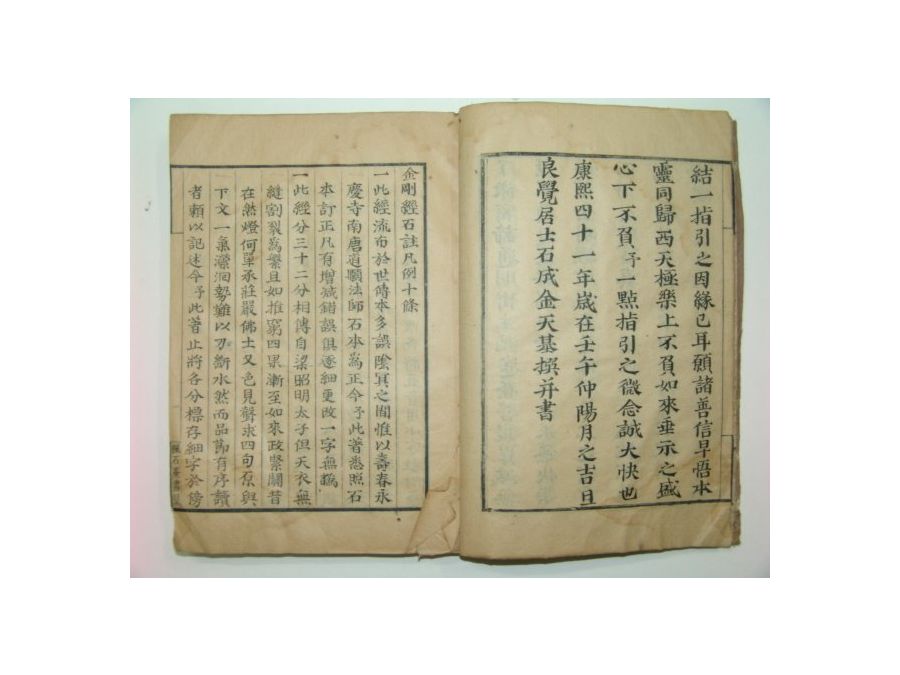 結一指引之因緣已耳願諸善信早悟本
靈同歸西天極樂上不負如來垂示之盛
心下不負予一點指引之微念誠大快也
康熙四十一年歲在壬午仲陽月之吉旦
良覺居士石成金天基撰并書
金剛經石註凡例十條
一此經流布於世傳本多誤陰冥之間惟以壽春永
慶寺南唐道顒法師石本為正今予此著悉照石
本訂正凡有增減錯誤俱逐細更改一字無譌
一此經分三十二分相傳自梁昭明太子但天衣無
縫割裂為繁且如推窮四果漸至如來政緊關昔
在然燈何單承莊嚴佛土又色見聲求四句原與
下文一氣瀠洄勢難以刀斷水然而品節有序讀
者賴以記述今予此著止將各分標存細字於傍